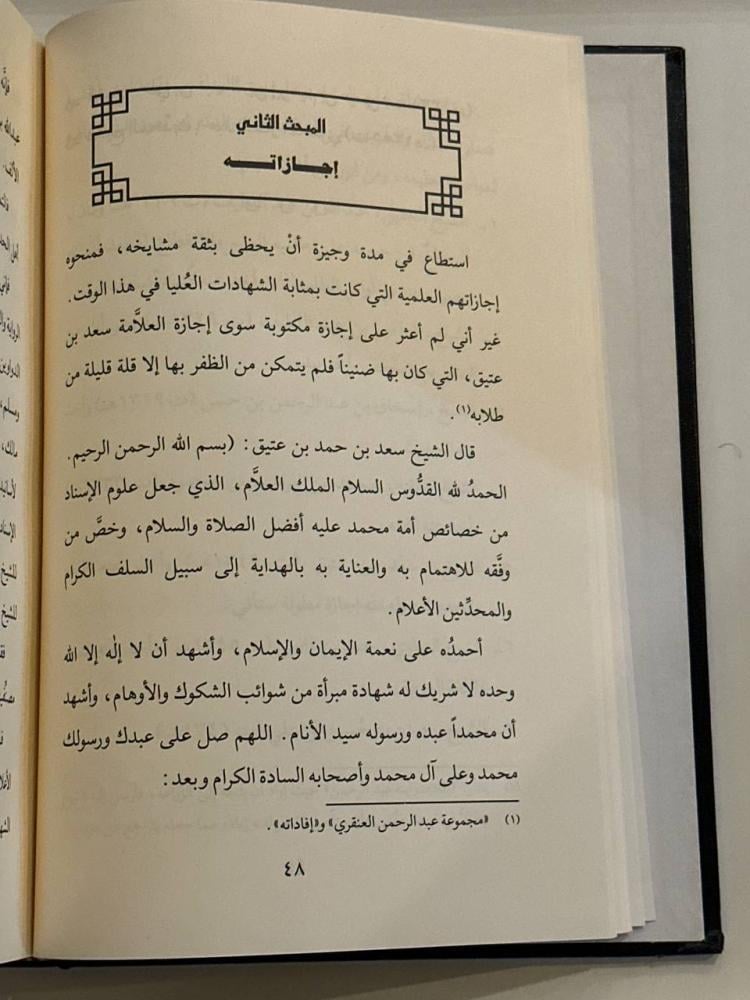 المبحث الثاني
إجـــازاتـــه
استطاع في مدة وجيزة أنْ يحظى بثقة مشايخه، فمنحوه
إجازاتهم العلمية التي كانت بمثابة الشهادات العُليا في هذا الوقت.
غير أني لم أعثر على إجازة مكتوبة سوى إجازة العلاَّمة سعد بن
عتيق، التي كان بها ضنيناً فلم يتمكن من الظفر بها إلا قلة قليلة من
طلابه(١).
قال الشيخ سعد بن حمد بن عتيق: (بسم الله الرحمن الرحيم.
الحمدُ لله القدُّوس السلام الملك العلاَّم، الذي جعل علوم الإسناد
من خصائص أمة محمد عليه أفضل الصلاة والسلام، وخصَّ من
وفَّقه للاهتمام به والعناية به بالهداية إلى سبيل السلف الكرام
والمحدِّثين الأعلام.
أحمدُه على نعمة الإيمان والإسلام، وأشهد أن لا إلٰه إلا الله
وحده لا شريك له شهادة مبرأة من شوائب الشكوك والأوهام، وأشهد
أن محمداً عبده ورسوله سيد الأنام. اللهم صل على عبدك ورسولك
محمد وعلى آل محمد وأصحابه السادة الكرام وبعد:
(١) «مجموعة عبد الرحمن العنقري» و«إفاداته».
٤٨